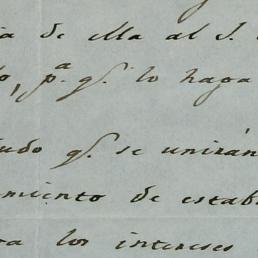 ia de ella al S.
o, p.ª q.e lo haga
udo q.e se unirán
miento de estab
ra los intereses